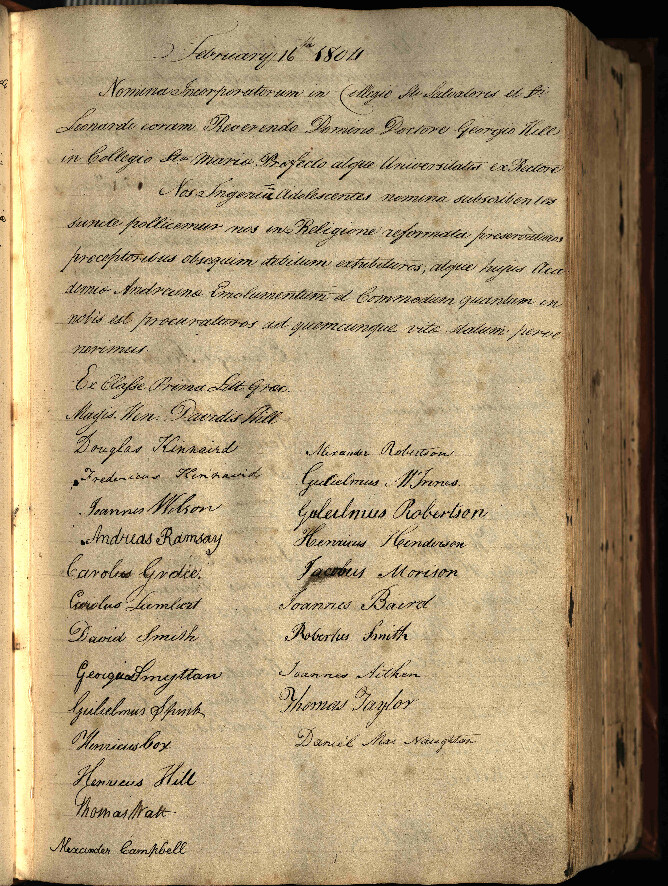 February 16th 1804
Nomina Incorporatorum in Collegio Sti Salvatoris et Sti
Leonardi coram Reverendo Domino Doctore Georgio Hill
in Collegio Stæ Mariæ Præfecto atque Universitatis ex Rectore
Nos Ingenui Adolescentes nomina subscribentes
sancte pollicemur nos in Religione reformata perseveraturos
preceptoribus obsequium debitum exhibituros, atque hujus Aca
demiæ Andreanæ Emolumentum et Commodum quantum in
nobis est procuraturos ad quemcunque vitæ statum perve
nerimus
Ex Classe Prima Litt Græc.
Magis. Hen: Davidis Hill
Douglas Kinnaird
Fredericus Kinnaird
Joannes Wilson
Andreas Ramsay
Carolus Grace.
Carolus Lambart
David Smith
Georgius Smyttan
Gulielmus Spink
Henricus Cox
Henricus Hill
Thomas Watt.
Alexander Campbell
Alexander Robertson
Gulielmus McInnes
Gulielmus Robertson
Henricus Henderson
Jacobus Morison
Joannes Baird
Robertus Smith
Joannes Aitken
Thomas Taylor
Daniel Mac Naughtan